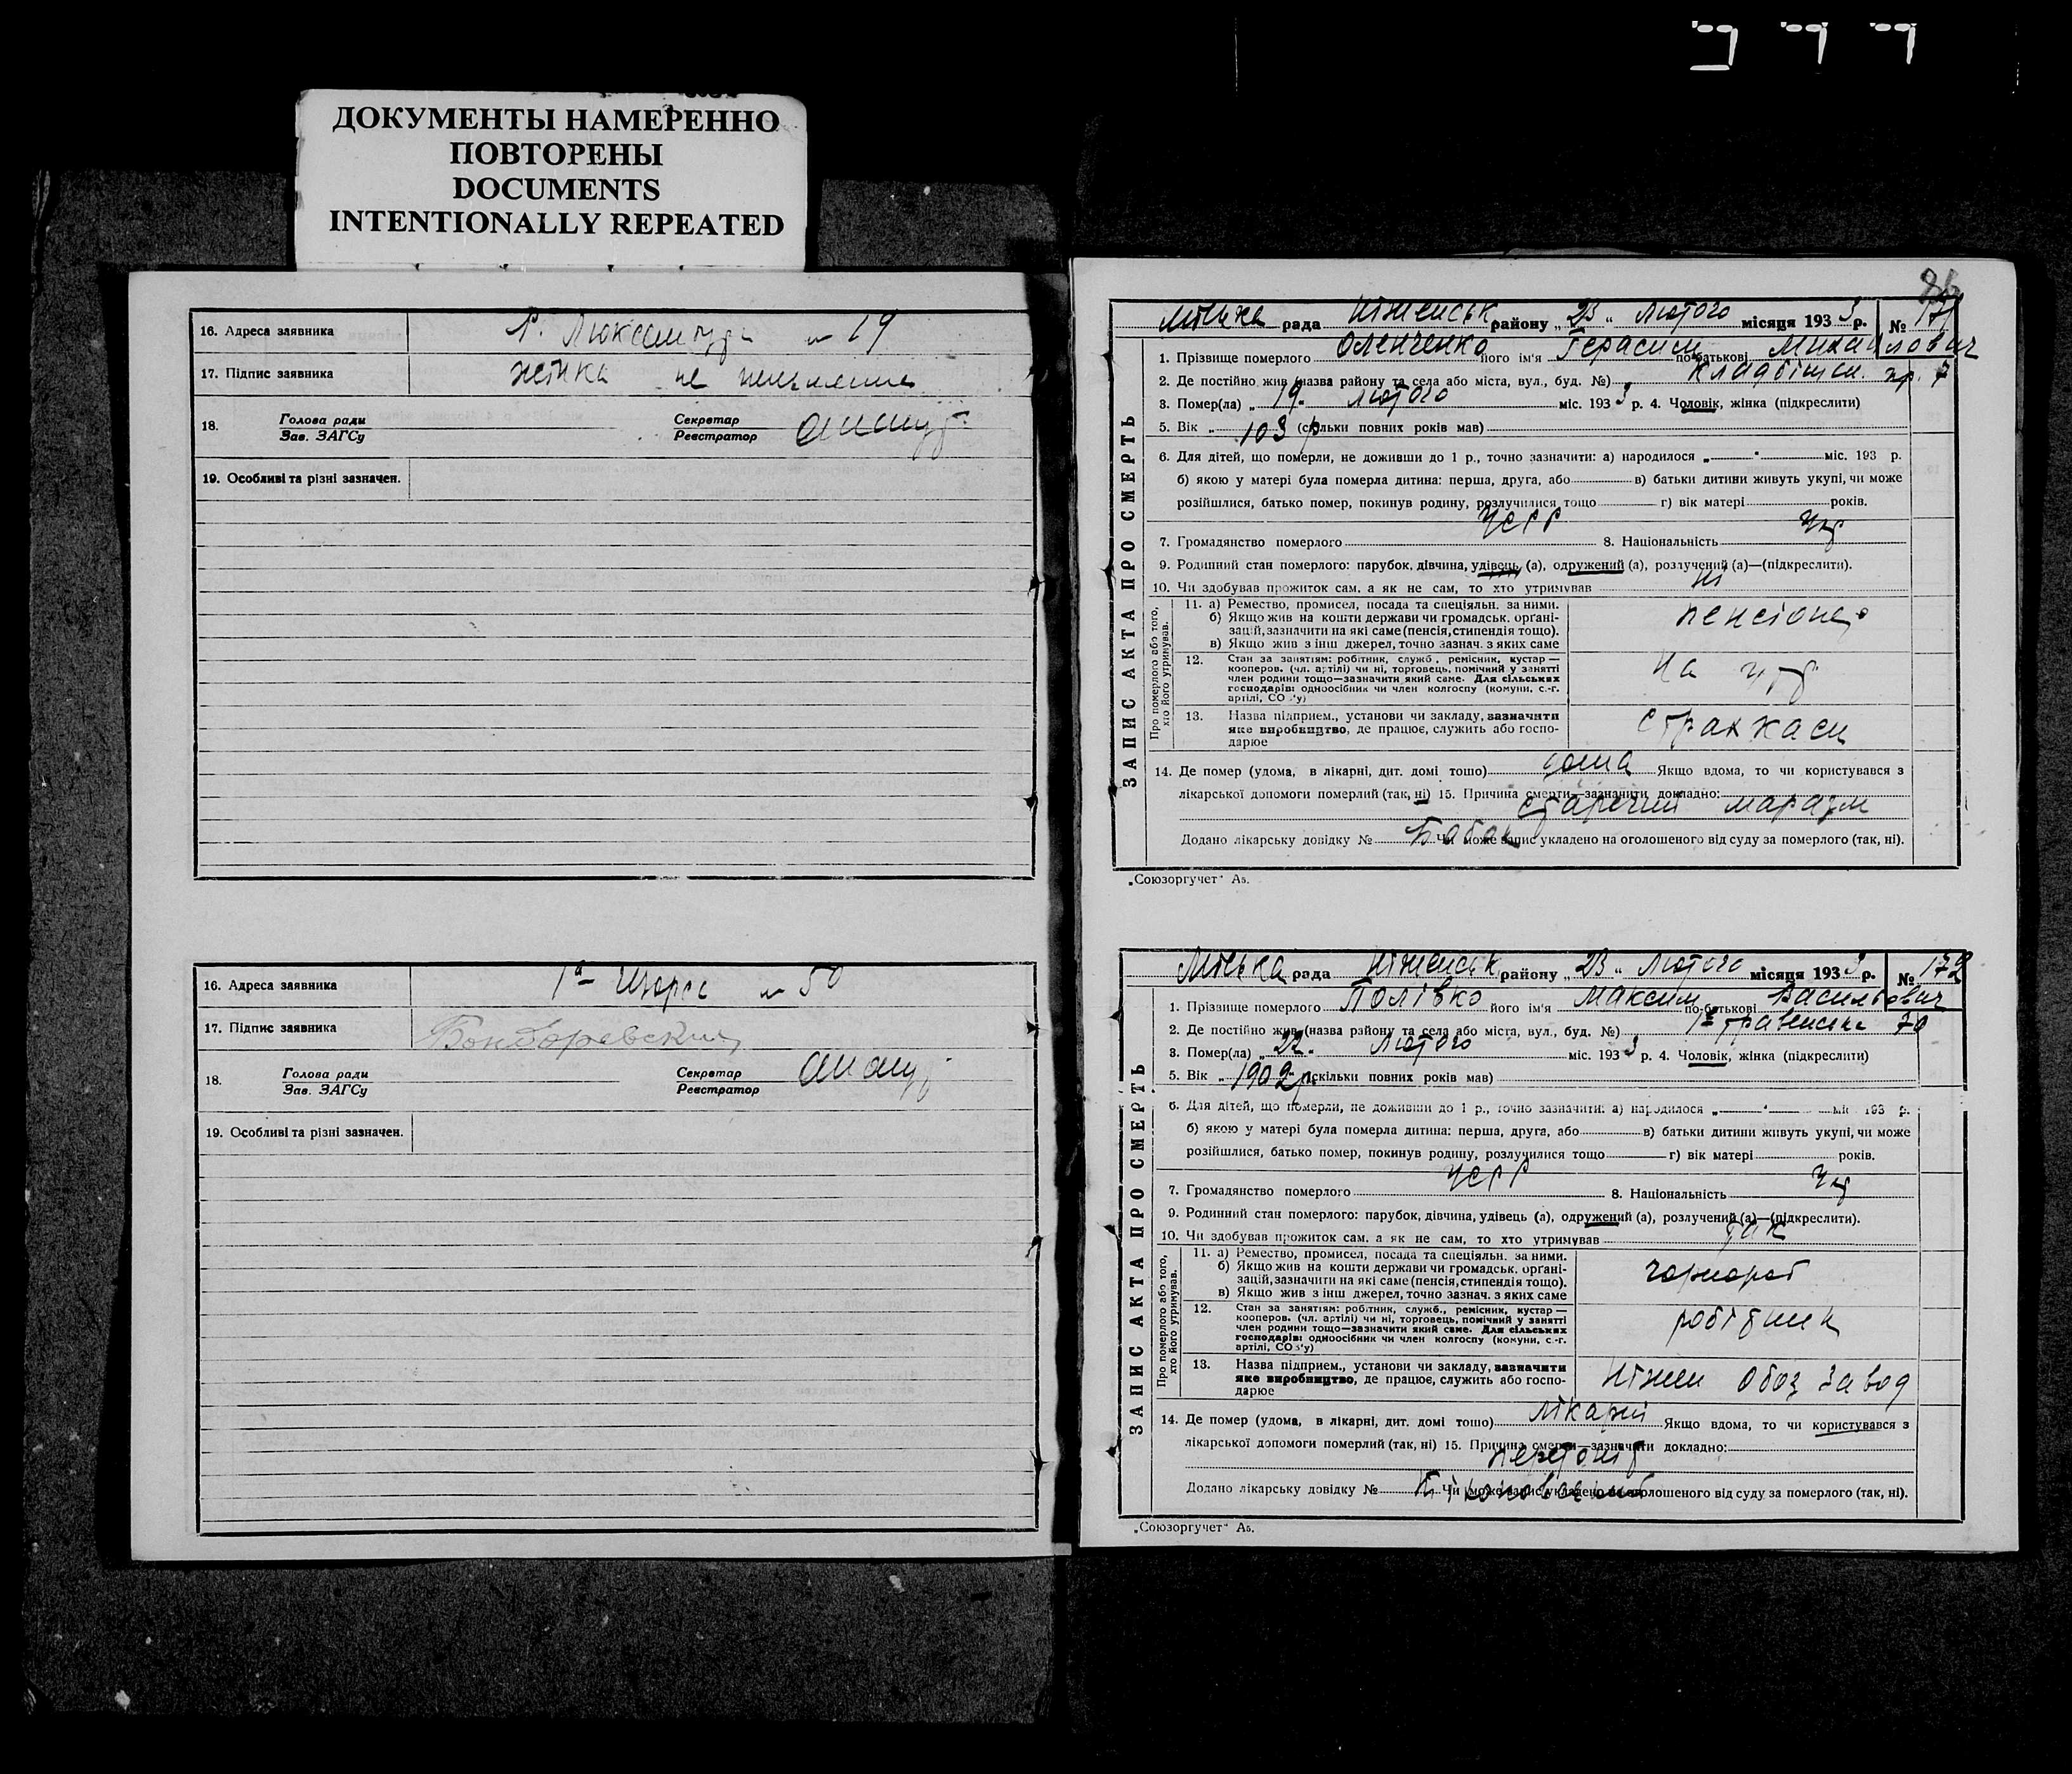 ДОКУМЕНТЫ НАМЕРЕННО
ПОВТОРЕНЫ
DOCUMENTS
INTENTIONALLY REPEATED
16. Адреса заявника Р. Люксембург № 19
17. Підпис заявника жінка не письменна
18. Голова ради Секретар
Зав. ЗАГСу Реєстратор
19. Особливі та різні зазначен.
16. Адреса заявника № 50
17. Підпис заявника
18. Голова ради Секретар
Зав. ЗАГСу Реєстратор
19. Особливі та різні зазначен.
ЗАПИС АКТА ПРО СМЕРТЬ
Міська рада Ніженськ району „23“ Лютого місяця 1933 р. № 171
1. Прізвище померлого Оленченко його ім'я Герасим по-батькові Михайлович
2. Де постійно жив (назва району та села або міста, вул., буд. №) 7
3. Помер(ла) „19“ Лютого міс. 1933 р. 4. Чоловік, жінка (підкреслити)
5. Вік „103 р (скільки повних років мав)
6. Для дітей, що померли, не доживши до 1 р., точно зазначити: а) народилося „ “ міс. 193 р.
б) якою у матері була померла дитина: перша, друга, або в) батьки дитини живуть укупі, чи може
розійшлися, батько помер, покинув родину, розлучилися тощо г) вік матері років.
7. Громадянство померлого УСРР 8. Національність Укр
9. Родинний стан померлого: парубок, дівчина, удівець (а), одружений (а), розлучений (а)—(підкреслити).
10. Чи здобував прожиток сам, а як не сам, то хто утримував ні
Про померлого або того, хто його утримував.
11. а) Ремество, промисел, посада та спеціяльн. за ними.
б) Якщо жив на кошти держави чи громадськ. органі-
зацій, зазначити на які саме (пенсія, стипендія тощо).
в) Якщо жив з інш джерел, точно зазнач. з яких саме
пенсіонер
12. Стан за занятям: робітник, служб., ремісник, кустар —
кооперов. (чл. артілі) чи ні, торговець, помічний у занятті
член родини тощо—зазначити який саме. Для сільських
господарів: одноосібник чи член колгоспу (комуни, с.-г.
артілі, СОЗ'у)
на утр
13. Назва підприєм., установи чи закладу, зазначити
яке виробництво, де працює, служить або госпо-
дарює
страхкаси
14. Де помер (удома, в лікарні, дит. домі тощо) дома Якщо вдома, то чи користувався з
лікарської допомоги померлий (так, ні) 15. Причина смерти—зазначити докладно:
старечий маразм
Додано лікарську довідку № Чи може запис укладено на оголошеного від суду за померлого (так, ні).
„Союзоргучет“ А5.
ЗАПИС АКТА ПРО СМЕРТЬ
Міська рада Ніженськ району „23“ Лютого місяця 1933 р. № 172
1. Прізвище померлого Полівко його ім'я Максим по-батькові Васильович
2. Де постійно жив (назва району та села або міста, вул., буд. №) 70
3. Помер(ла) „22“ Лютого міс. 1933 р. 4. Чоловік, жінка (підкреслити)
5. Вік „1902 р. (скільки повних років мав)
6. Для дітей, що померли, не доживши до 1 р., точно зазначити: а) народилося „ “ міс 193 р.
б) якою у матері була померла дитина: перша, друга, або в) батьки дитини живуть укупі, чи може
розійшлися, батько помер, покинув родину, розлучилися тощо г) вік матері років.
7. Громадянство померлого УСРР 8. Національність Укр
9. Родинний стан померлого: парубок, дівчина, удівець (а), одружений (а), розлучений (а)—(підкреслити).
10. Чи здобував прожиток сам, а як не сам, то хто утримував так
Про померлого або того, хто його утримував.
11. а) Ремество, промисел, посада та спеціяльн. за ними.
б) Якщо жив на кошти держави чи громадськ. органі-
зацій, зазначити на які саме (пенсія, стипендія тощо).
в) Якщо жив з інш джерел, точно зазнач. з яких саме
чорнороб
12. Стан за занятям: робітник, служб., ремісник, кустар —
кооперов. (чл. артілі) чи ні, торговець, помічний у занятті
член родини тощо—зазначити який саме. Для сільських
господарів: одноосібник чи член колгоспу (комуни, с.-г.
артілі, СОЗ'у)
робітник
13. Назва підприєм., установи чи закладу, зазначити
яке виробництво, де працює, служить або госпо-
дарює
Ніжен Обоз завод
14. Де помер (удома, в лікарні, дит. домі тощо) лікарні Якщо вдома, то чи користувався з
лікарської допомоги померлий (так, ні) 15. Причина смерти—зазначити докладно:
перетоніт
Додано лікарську довідку № Чи може запис укладено на оголошеного від суду за померлого (так, ні).
„Союзоргучет“ А5.